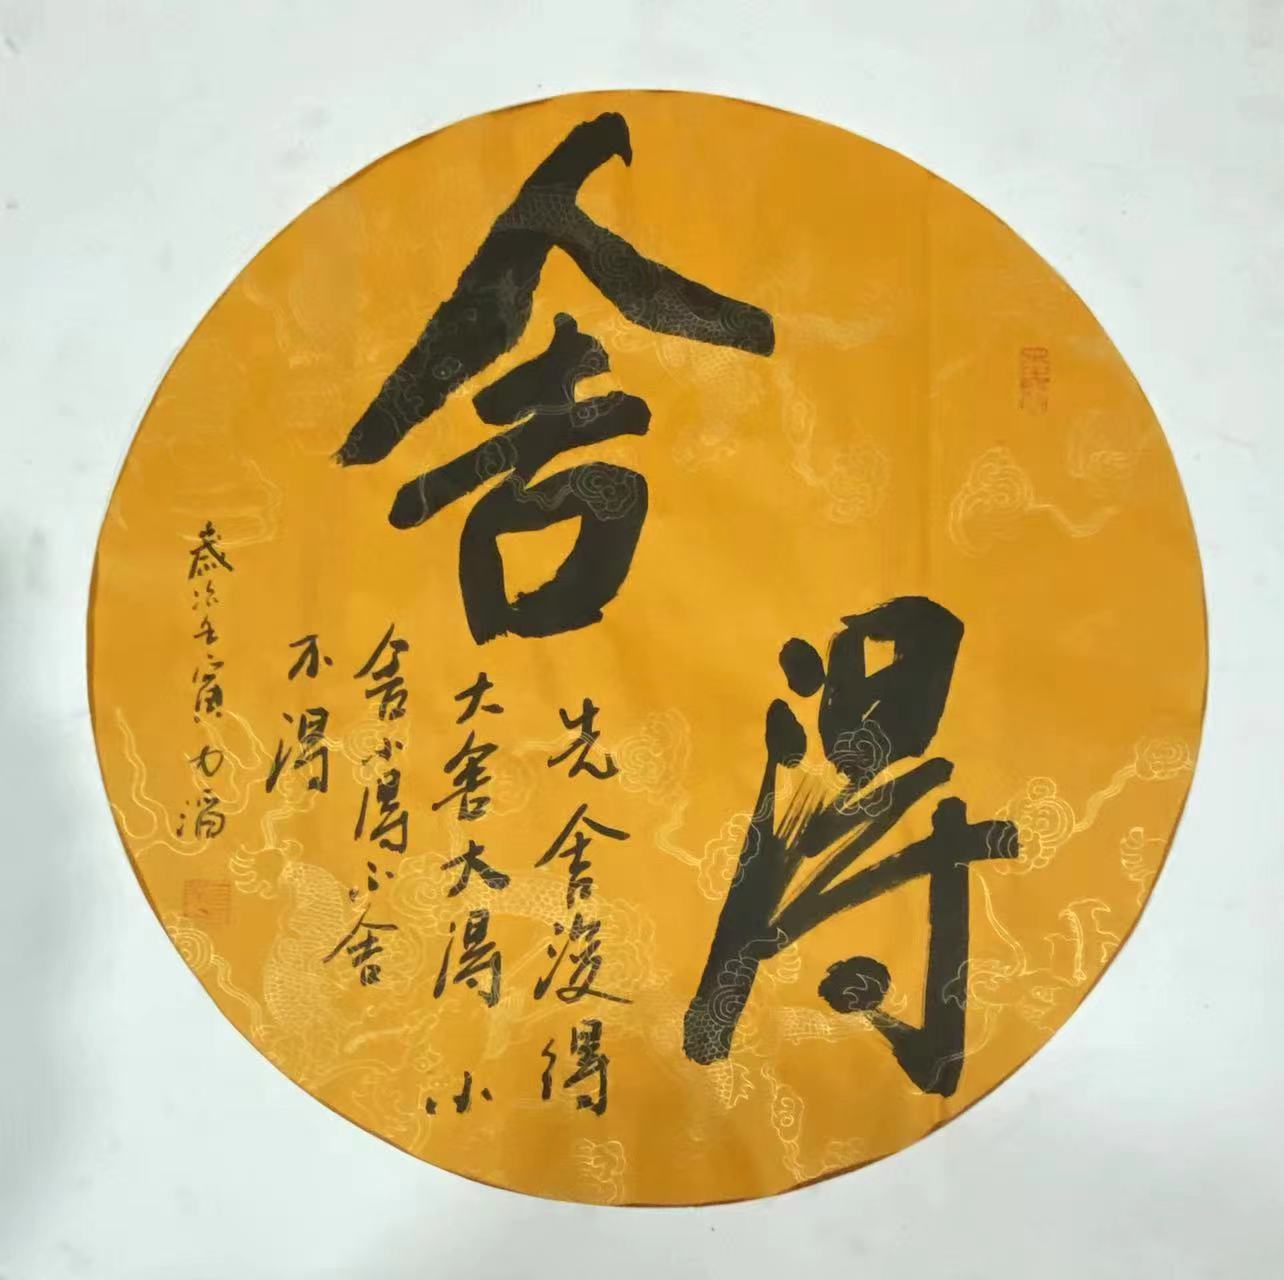 舍得
先舍後得
大舍大得 小
舍小得不舍
不得
壬寅